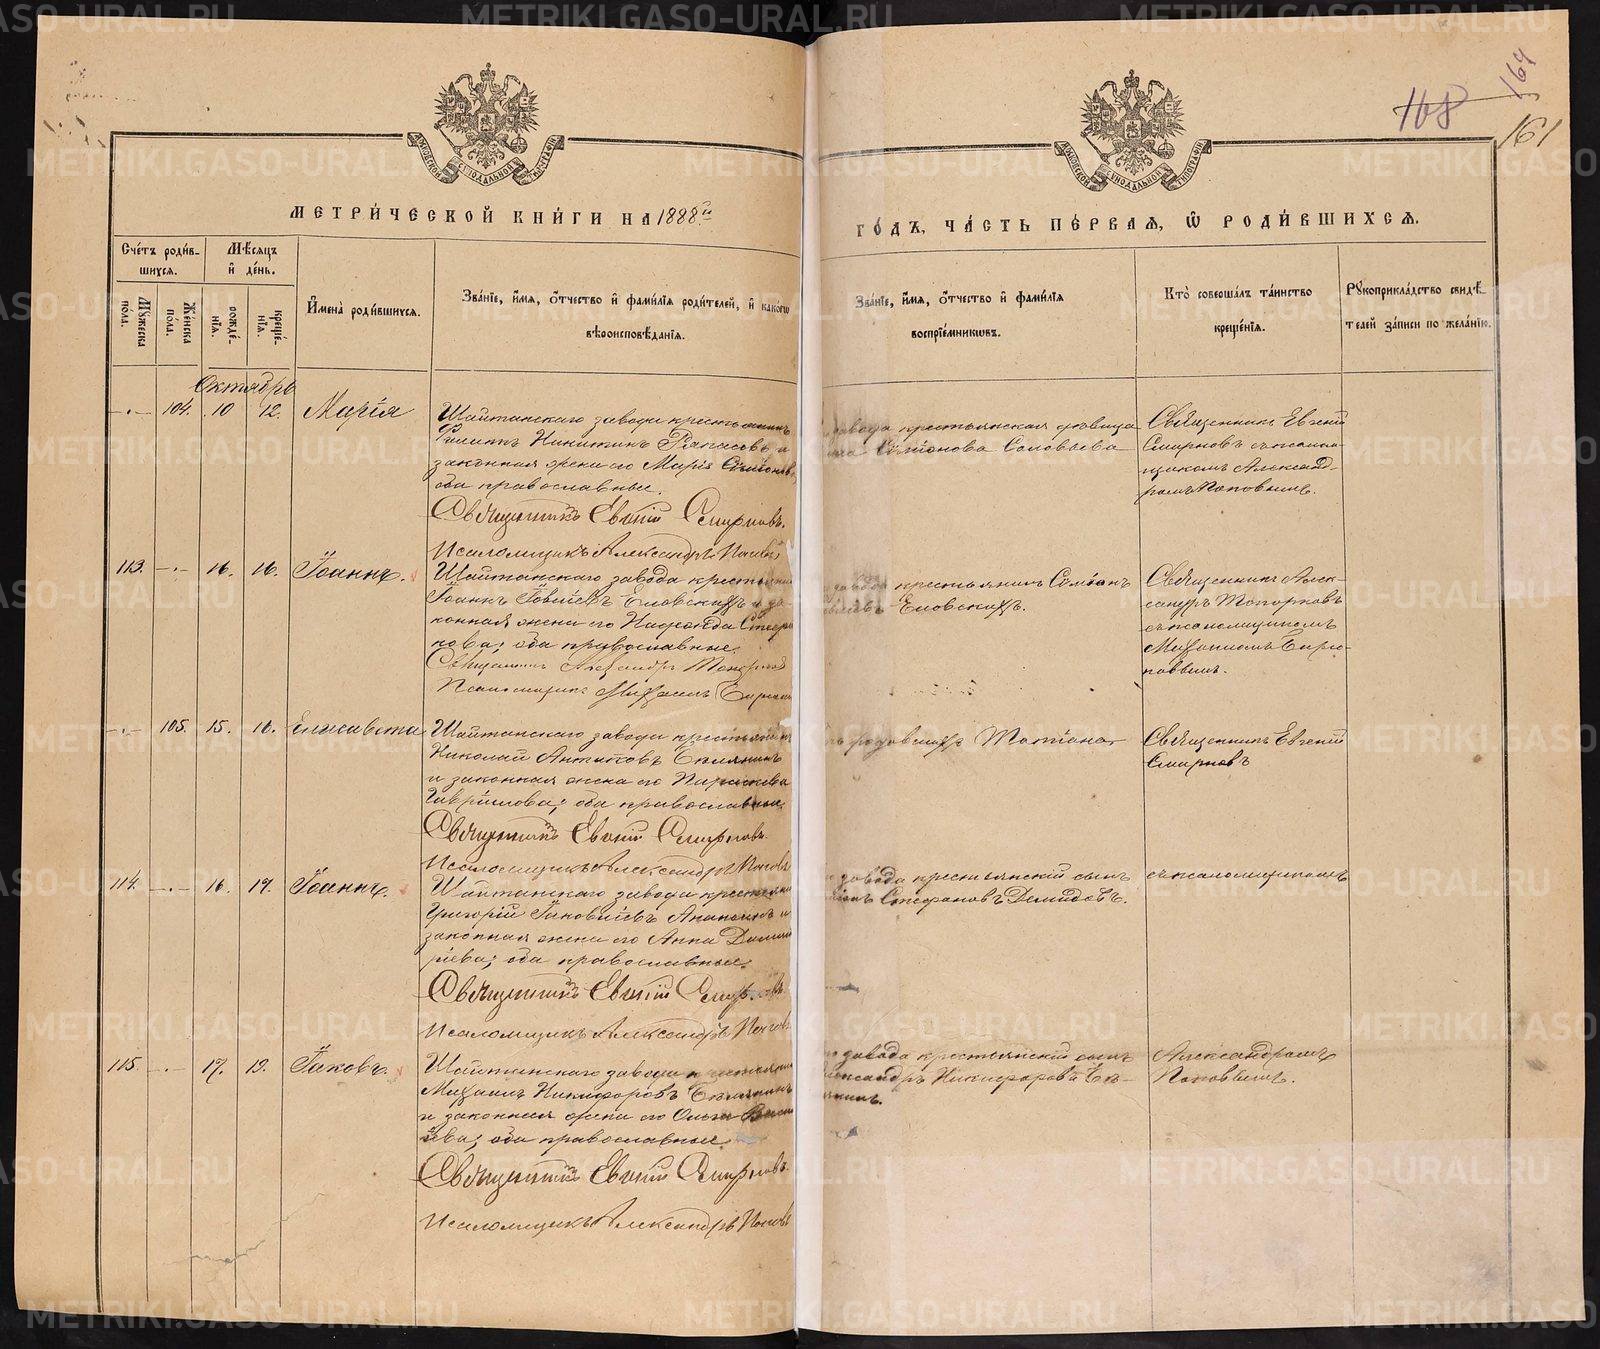 METRIKI.GASO-URAL.RU
168
164
161
МОСКОВСКОЙ СѴНОДАЛЬНОЙ ТИПОГРАФІИ
МОСКОВСКОЙ СѴНОДАЛЬНОЙ ТИПОГРАФІИ
МЕТРИ́ЧЕСКОЙ КНИ́ГИ НА 1888й
ГО́ДЪ, ЧА́СТЬ ПЕ́РВАЯ, Ѡ҆ РОДИ́ВШИХСЯ.
Сче́тъ роди́в-
шихся.
Мѣ́сяцъ
и҆ де́нь.
Му́жеска по́ла.
Же́нска по́ла.
рожде́-
нія.
креще́-
нія.
И҆мена̀ роди́вшихся.
Зва́ніе, и҆́мя, ѻ҆́тчество и҆ фами́лія роди́телей, и҆ како́гѡ
вѣроисповѣ́данія.
Зва́ніе, и҆́мя, ѻ҆́тчество и҆ фами́лія
воспріе́мниковъ.
Кто̀ соверша́лъ та́инство
креще́нія.
Рукоприкла́дство свидѣ́-
телей за́писи по жела́нію.
Октябрь
104. 10 12. Марія
Шайтанскаго завода крестьянинъ
Филиппъ Никитинъ
законная жена его Марія Симіонова
оба православные.
Священникъ Евгеній Смирновъ.
Псаломщикъ Александръ Поповъ
завода крестьянская дѣвица
Симіонова Соловьева
Священникъ Евгеній
Смирновъ съ псалом-
щикомъ Александ-
ромъ Поповымъ.
113. 16. 16. Іоаннъ.
Шайтанскаго завода крестьянинъ
Іоаннъ Іовлевъ Еловскихъ и за-
конная жена его
оба православные.
Священникъ Александръ Топорковъ
Псаломщикъ Михаилъ
завода крестьянинъ Симіонъ
Еловскихъ.
Священникъ Алек-
сандръ Топорковъ
съ псаломщикомъ
Михаиломъ Бирю-
ковымъ.
105. 15. 16. Елисавета
Шайтанскаго завода крестьянинъ
Николай
и законная жена его Параскева
Гаврилова; оба православные.
Священникъ Евгеній Смирновъ.
Псаломщикъ Александръ Поповъ
Татіана
Священникъ Евгеній
Смирновъ
114. 16. 19. Іоаннъ.
Шайтанскаго завода крестьянинъ
Григорій Іаковлевъ
законная жена его Анна
оба православные.
Священникъ Евгеній Смирновъ
Псаломщикъ Александръ Поповъ
завода крестьянскій сынъ
Стефановъ Демидовъ.
съ псаломщикомъ
115. 17. 19. Іаковъ.
Шайтанскаго завода крестьянинъ
Михаилъ Никифоровъ
и законная жена его Ольга
оба православные
Священникъ Евгеній Смирновъ
Псаломщикъ Александръ Поповъ
завода крестьянскій сынъ
Александръ Никифоровъ
Александромъ
Поповымъ.